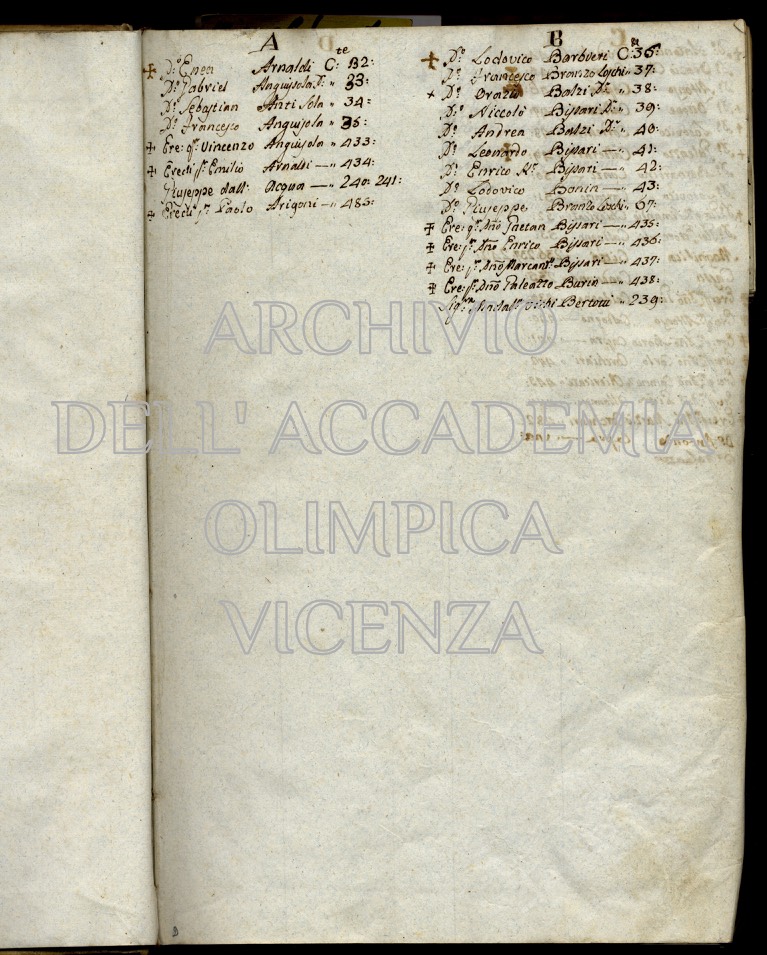 A
te
✠ D.º Enea Arnaldi C: 32:
D.º Gabriel Anguisola D.r " 33:
D.º Sebastian Anti Sola " 34:
D.º Francesco Anguisola " 35:
✠ Ere: q.m Vincenzo Anguisola " 433:
✠ Eredi q.m Emilio Arnaldi — " 434:
Giuseppe dall: Acqua — " 240: 241:
✠ Eredi q.m Paolo Arigoni — " 485:
B
✠ D.º Lodovico Barbieri C: 36:
D.º Francesco Branzo Loschi " 37:
× D.º Orazio Balzi D.r " 38:
D.º Niccolò Bissari K.r " 39:
D.º Andrea Balzi D.r " 40:
D.º Leonardo Bissari — " 41:
D.º Enrico K.r Bissari — " 42:
D.º Lodovico Bonin — " 43:
D.º Giuseppe Branzo Loschi " 67:
✠ Ere: q.m Dño Gaetan Bissari — " 435:
✠ Ere: q.m Dño Enrico Bissari — " 436:
✠ Ere: q.m Dño Marcant.º Bissari — " 437:
✠ Ere: q.m Dño Galeazzo Burin — " 438:
Sig.ra Bertoni " 239:
ARCHIVIO
DELL' ACCADEMIA
OLIMPICA
VICENZA